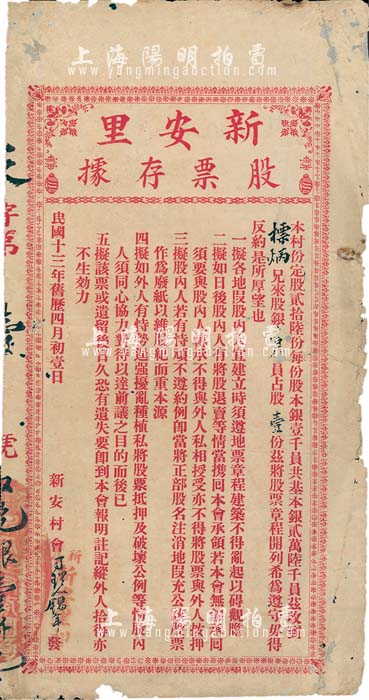 上海陽明拍賣
www.yangmingauction.com
新安里
股票存據
本村份定股貳拾陸份每份股本銀壹千員共基本銀貳萬陸千員茲收
標炳兄來股銀 員占股壹份茲將股票章程開列希為遵守毋得
反約是所厚望也
一擬各地叚股內人 建立時須遵地票章程建築不得亂起以碍觀
二擬如日後股內人 將股退賣等情當携回本會承領若本會無 回
須要與股內人 不得與外人私相授受亦不得將股票與外人 押
三擬股內人若有 不遵約例卽當將正部股名注消地叚 及股票
作為廢紙以維 而重本源
四擬如外人有恃勢 強擾亂種植私將股票抵押及破壞公例等 股內
人須同心協力對 以達前議之目的而後已
五擬該票或遺留 久恐有遺失要卽到本會報明註記縱外人拾 亦
不生効力
民國十三年舊歷四月初壹日
新安村會 發
字第 號
上海陽明拍賣
www.yangmingauction.com